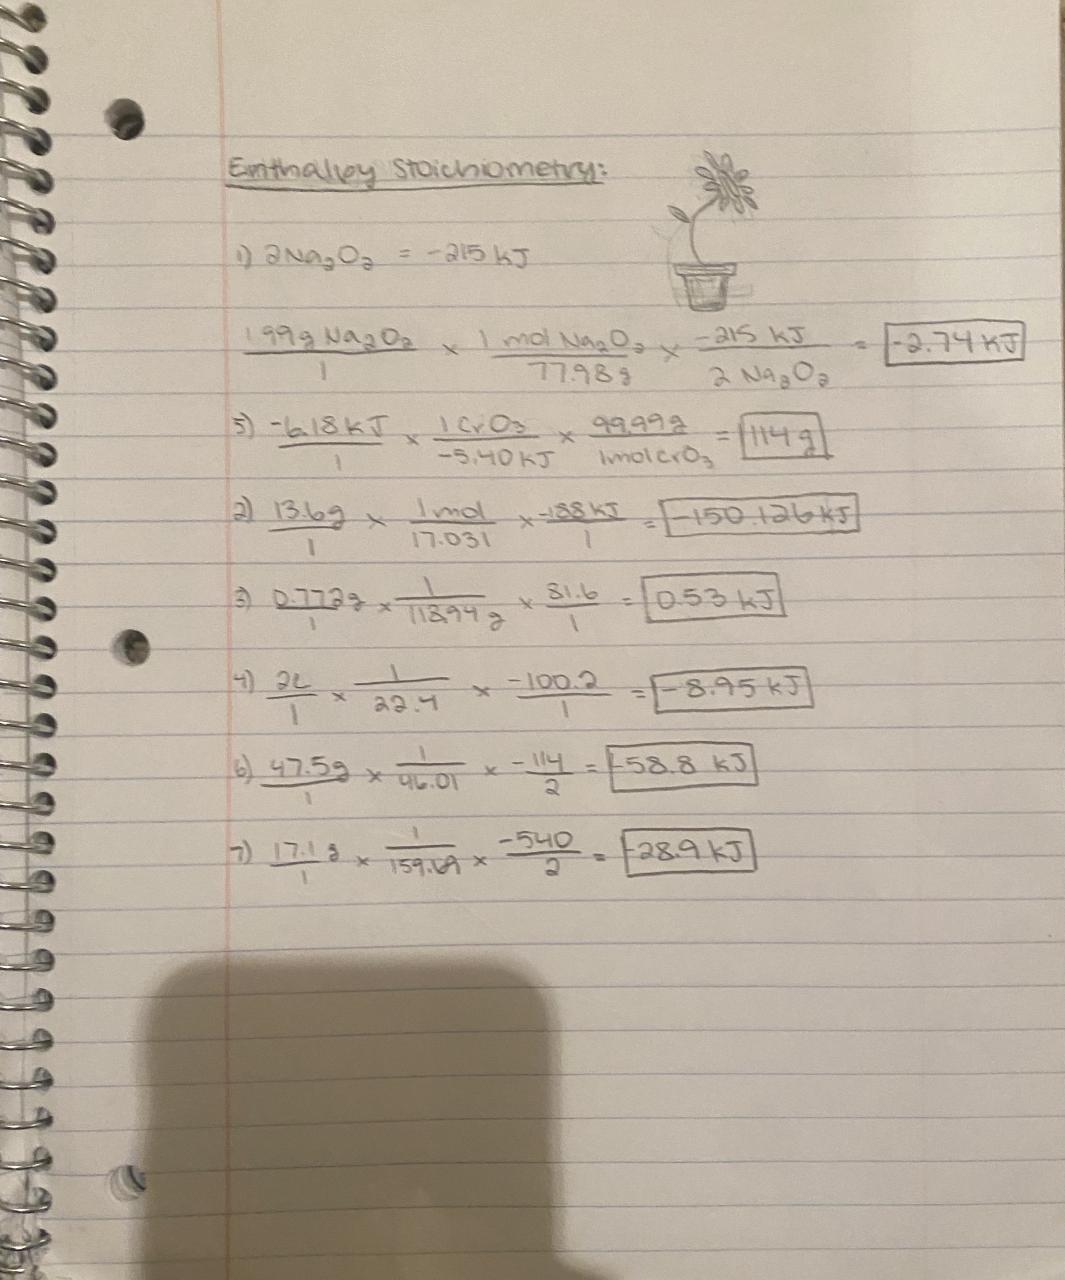 Enthalpy Stoichiometry:
1) 2Na₂O₂ = -215 kJ
1.99g Na₂O₂/1 × 1 mol Na₂O₂/77.98g × -215 kJ/2 Na₂O₂ = -2.74 kJ
5) -6.18 kJ/1 × 1 CrO₃/-5.40 kJ × 99.99g/1 mol CrO₃ = 114 g
2) 13.6g/1 × 1 mol/17.031 × -188 kJ/1 = -150.126 kJ
3) 0.772g/1 × 1/118.94 g × 81.6/1 = 0.53 kJ
4) 2L/1 × 1/22.4 × -100.2/1 = -8.95 kJ
6) 47.5g/1 × 1/46.01 × -114/2 = -58.8 kJ
7) 17.1 g/1 × 1/159.69 × -540/2 = -28.9 kJ